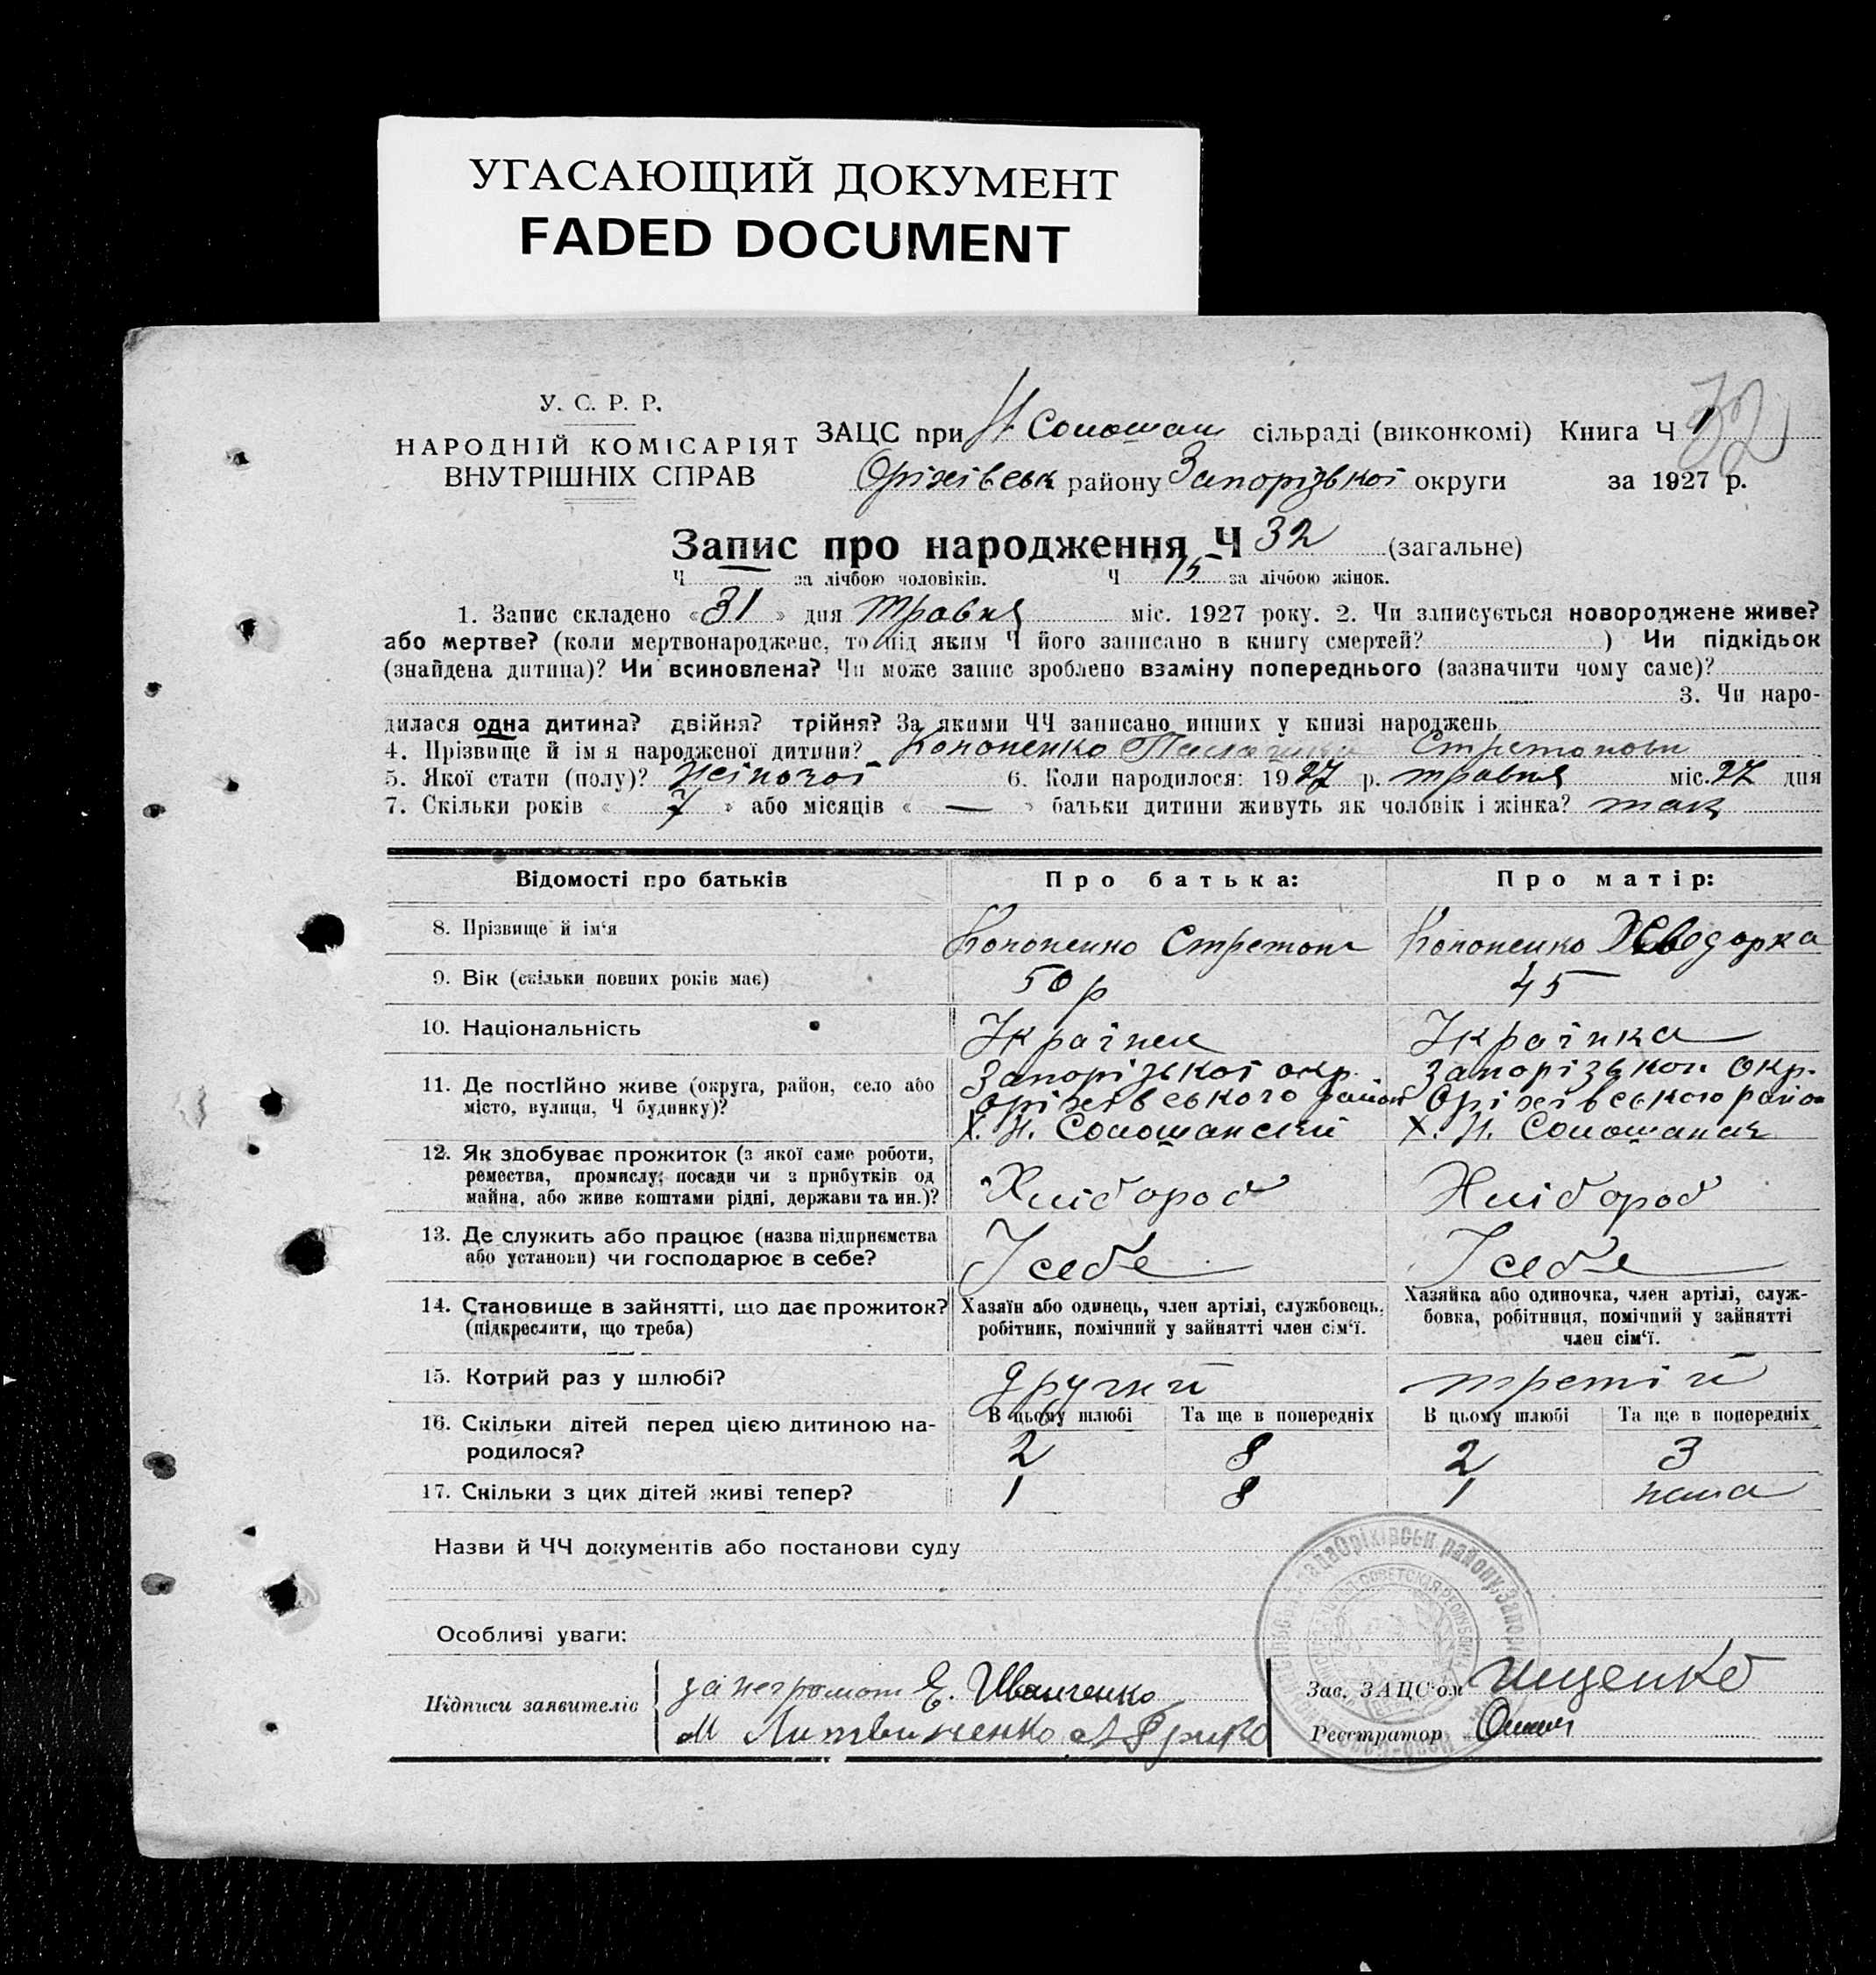 УГАСАЮЩИЙ ДОКУМЕНТ
FADED DOCUMENT
У. С. Р. Р.
НАРОДНІЙ КОМІСАРІЯТ
ВНУТРІШНІХ СПРАВ
32
ЗАЦС при Н сільраді (виконкомі) Книга Ч 1
Оріхівськ району Запорізької округи за 1927 р.
Запис про народження Ч 32 (загальне)
Ч за лічбою чоловіків. Ч 15 за лічбою жінок.
1. Запис складено « 31 » дня травня міс. 1927 року. 2. Чи записується новороджене живе?
або мертве? (коли мертвонароджене, то під яким Ч його записано в книгу смертей? ) Чи підкідьок
(знайдена дитина)? Чи всиновлена? Чи може запис зроблено взаміну попереднього (зазначити чому саме)?
3. Чи наро-
дилася одна дитина? двійня? трійня? За якими ЧЧ записано инших у книзі народжень
4. Прізвище й ім я народженої дитини? Кононенко
5. Якої стати (полу)? жіночої 6. Коли народилося: 1927 р. травня міс. 27 дня
7. Скільки років « 7 » або місяців « — » батьки дитини живуть як чоловік і жінка? так
Відомості про батьків Про батька: Про матір:
8. Прізвище й ім'я Кононенко Стретон Кононенко Хеводорка
9. Вік (скільки повних років має) 50 р 45
10. Національність Українец Українка
11. Де постійно живе (округа, район, село або
місто, вулиця, Ч будинку)?
Запорізької окр. Запорізькои окр.
Оріхівського район Оріхівського район
Х. Н. Х. Н.
12. Як здобуває прожиток (з якої саме роботи,
ремества, промислу; посади чи з прибутків од
майна, або живе коштами рідні, держави та ин.)?
Хлібороб Хлібороб
13. Де служить або працює (назва підприємства
або установи) чи господарює в себе?
У себе У себе
14. Становище в зайнятті, що дає прожиток?
(підкреслити, що треба)
Хазяїн або одинець, член артілі, службовець,
робітник, помічний у зайнятті член сім'ї.
Хазяйка або одиночка, член артілі, служ-
бовка, робітниця, помічний у зайнятті
член сім'ї.
15. Котрий раз у шлюбі? другий третій
16. Скільки дітей перед цією дитиною на-
родилося?
В цьому шлюбі Та ще в попередніх В цьому шлюбі Та ще в попередніх
2 8 2 3
17. Скільки з цих дітей живі тепер? 1 8 1 нама
Назви й ЧЧ документів або постанови суду
Особливі уваги:
Підписи заявителів
за неграмот Е. Иванченко
М Литвиненко
Зав. ЗАЦС'ом Ищенко
Реєстратор